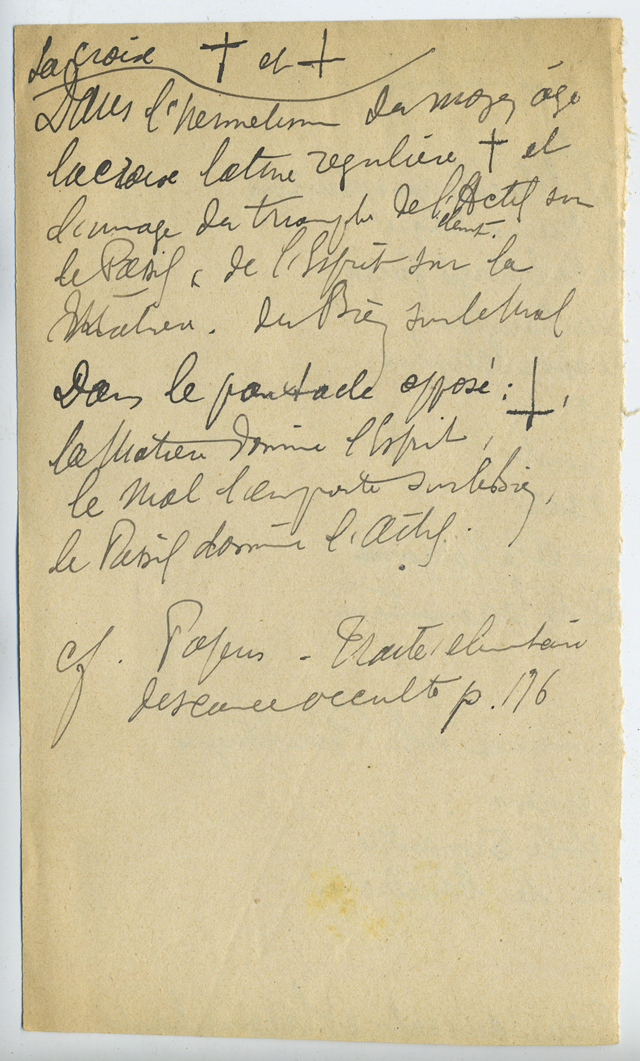 La croix † et ⸸
Dans l'hermetisme du moyen âge
la croix latine regulière † et
l'image du triomphe de l'Actif sur
le Passif, de l'Esprit sur la
Matière. du Bien sur le Mal
Dans le pantacle opposé : ⸸,
la Matière domine l'Esprit,
le Mal l'emporte sur le Bien,
le Passif domine l'Actif.
cf. Papus - Traité élémentaire
de science occulte p. 176